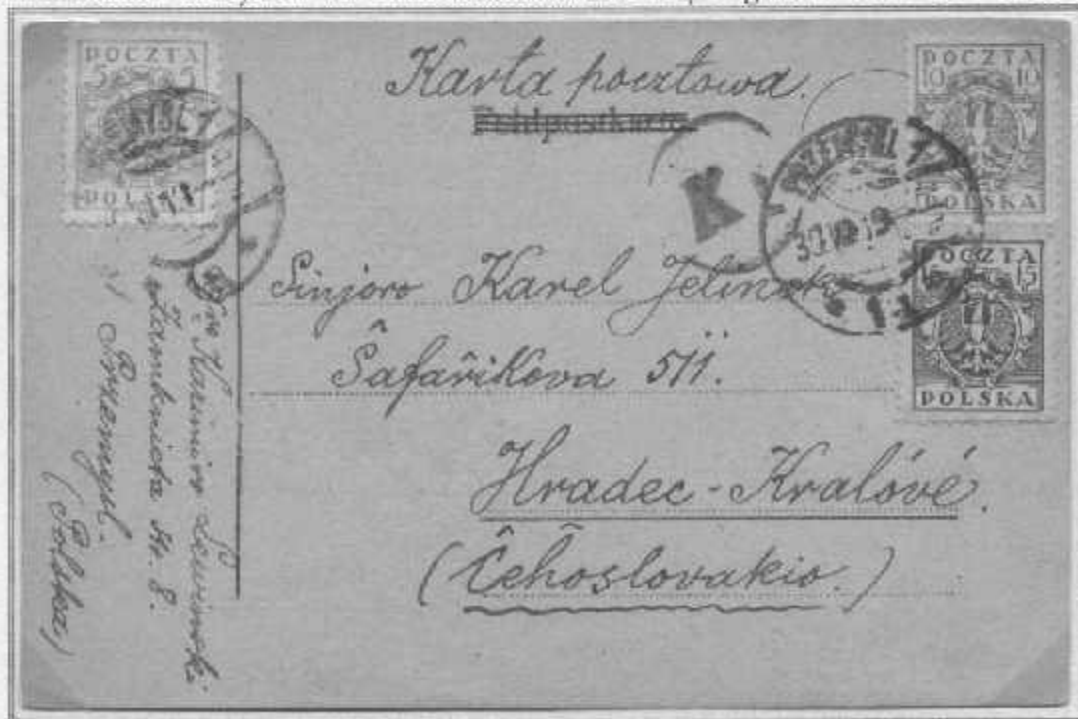 POCZTA
5 5
POLSKA
Karta pocztowa.
Feldpostkarte
POCZTA
10 10
POLSKA
K
PRZEMYŚL 1
POCZTA
15 15
POLSKA
Sinjoro Karel Jelinek
Ŝafaříkova 511.
Hradec-Kralóvé.
(Ĉehoslovakio.)
Kazimier Lewinski
Zamknieta Nr. 8.
Przemyśl.
(Polska)